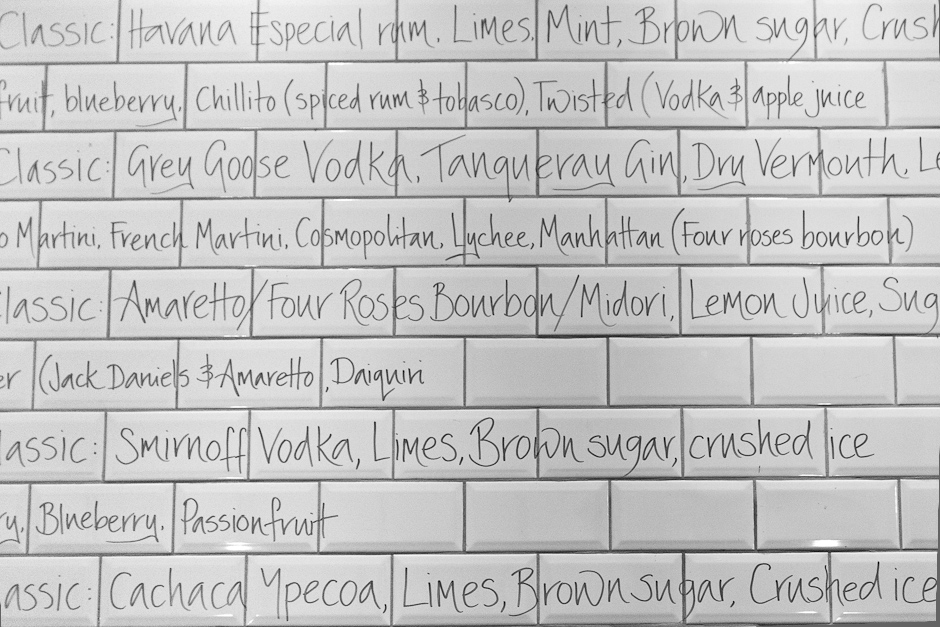 Classic: Havana Especial rum. Limes. Mint, Brown sugar, Crush
fruit, blueberry, Chillito (spiced rum & tobasco), Twisted (Vodka & apple juice
Classic: Grey Goose Vodka, Tanqueray Gin, Dry Vermouth. Le
o Martini, French Martini, Cosmopolitan, Lychee, Manhattan (Four roses bourbon)
lassic: Amaretto/Four Roses Bourbon/Midori, Lemon Juice, Sug
er (Jack Daniels & Amaretto, Daiquiri
assic: Smirnoff Vodka, Limes, Brown sugar, crushed ice
ry, Blueberry, Passionfruit
assic: Cachaca Ypecoa, Limes, Brown sugar, Crushed ice